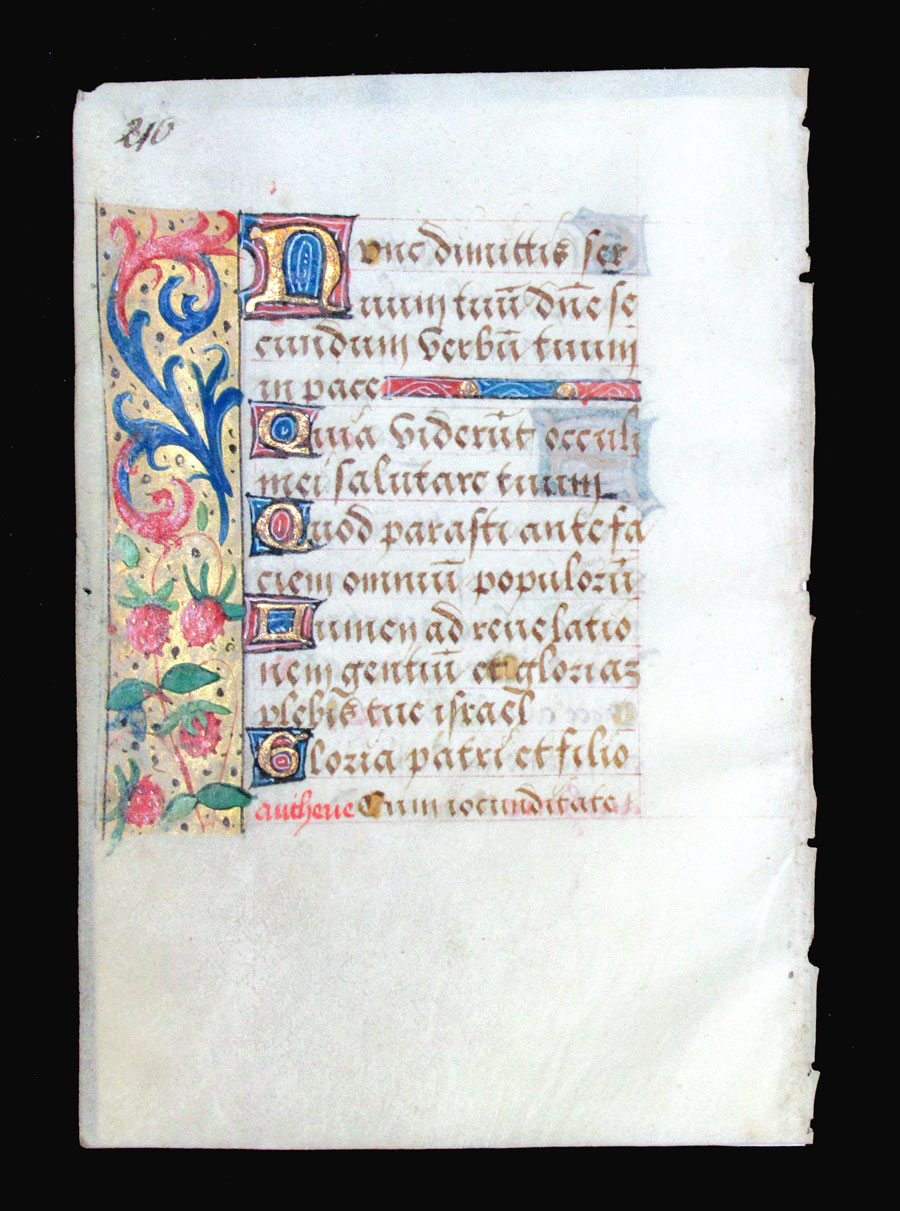 210
Nunc dimittis ser
uum tuū dn̄e se
cundum verbū tuum
in pace
Quia viderūt occuli
mei salutare tuum
Quod parasti ante fa
ciem omniū populorū
Lumen ad reuelatio
nem gentiū et gloriaz
plebis tue israel
Gloria patri et filio
Cum iocunditate